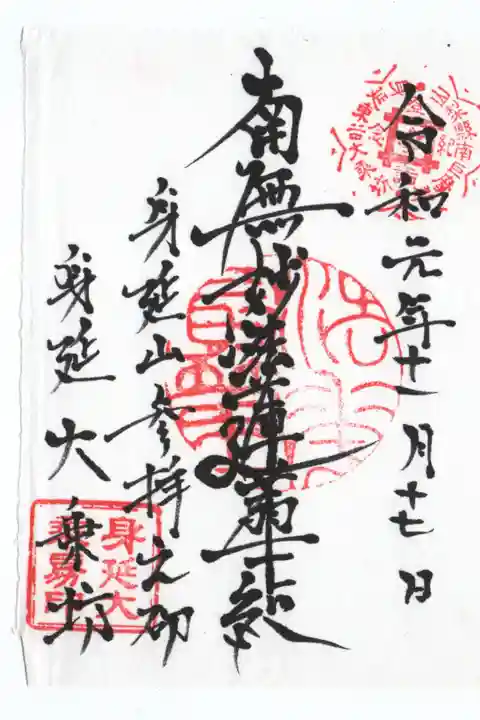 令和元年十一月十七日
南無妙法蓮華経
身延山参拝之砌
身延大乗坊